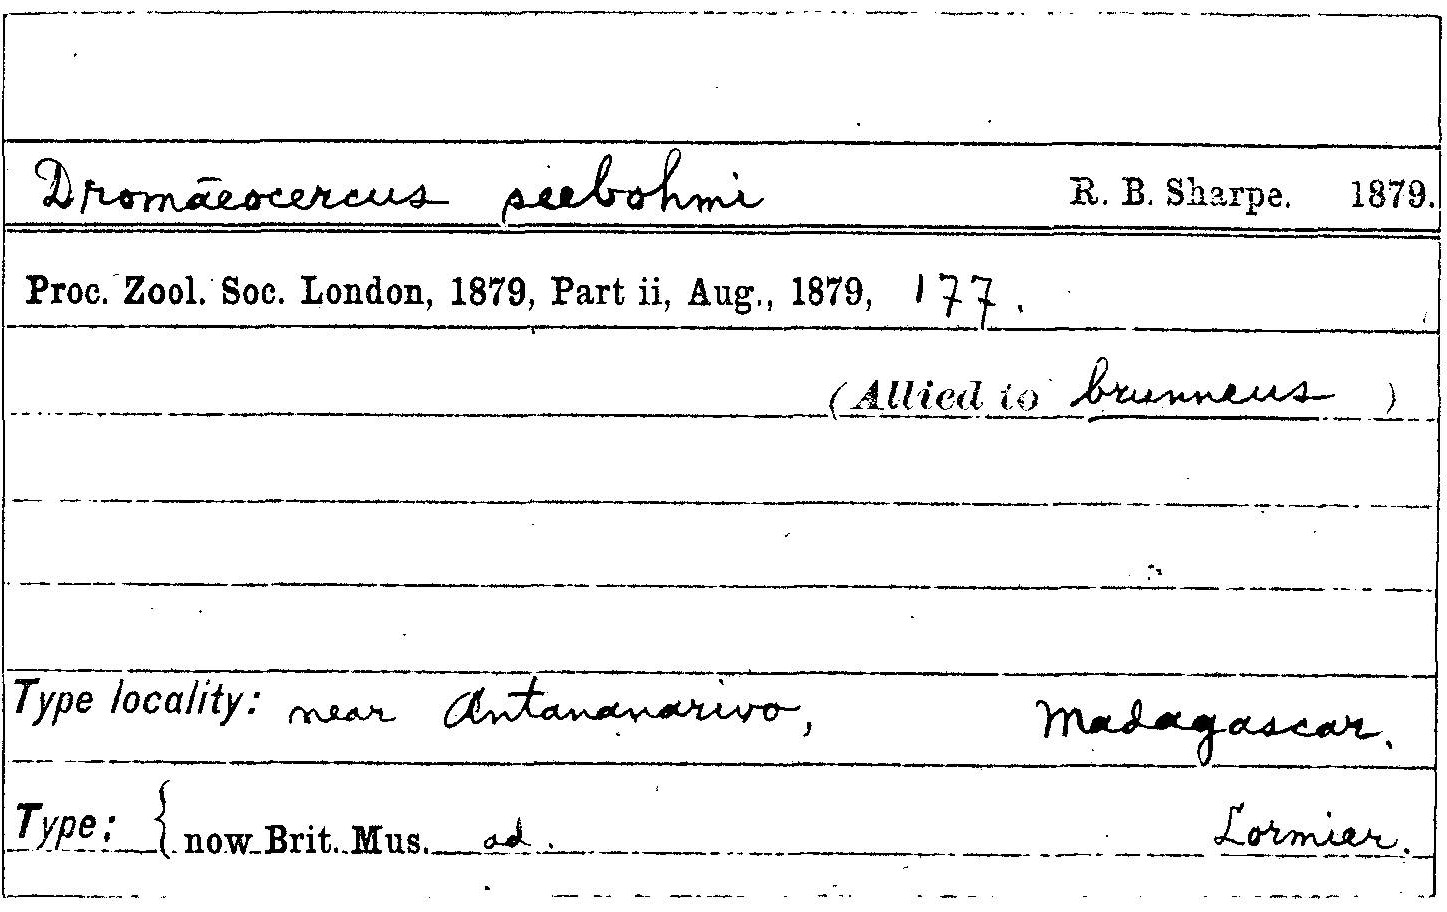 Dromāeocercus seebohmi R. B. Sharpe. 1879.
Proc. Zool. Soc. London, 1879, Part ii, Aug., 1879, 177.
(Allied to brunneus)
Type locality: near Antananarivo, Madagascar.
Type: { now Brit. Mus. ad. Lormier.